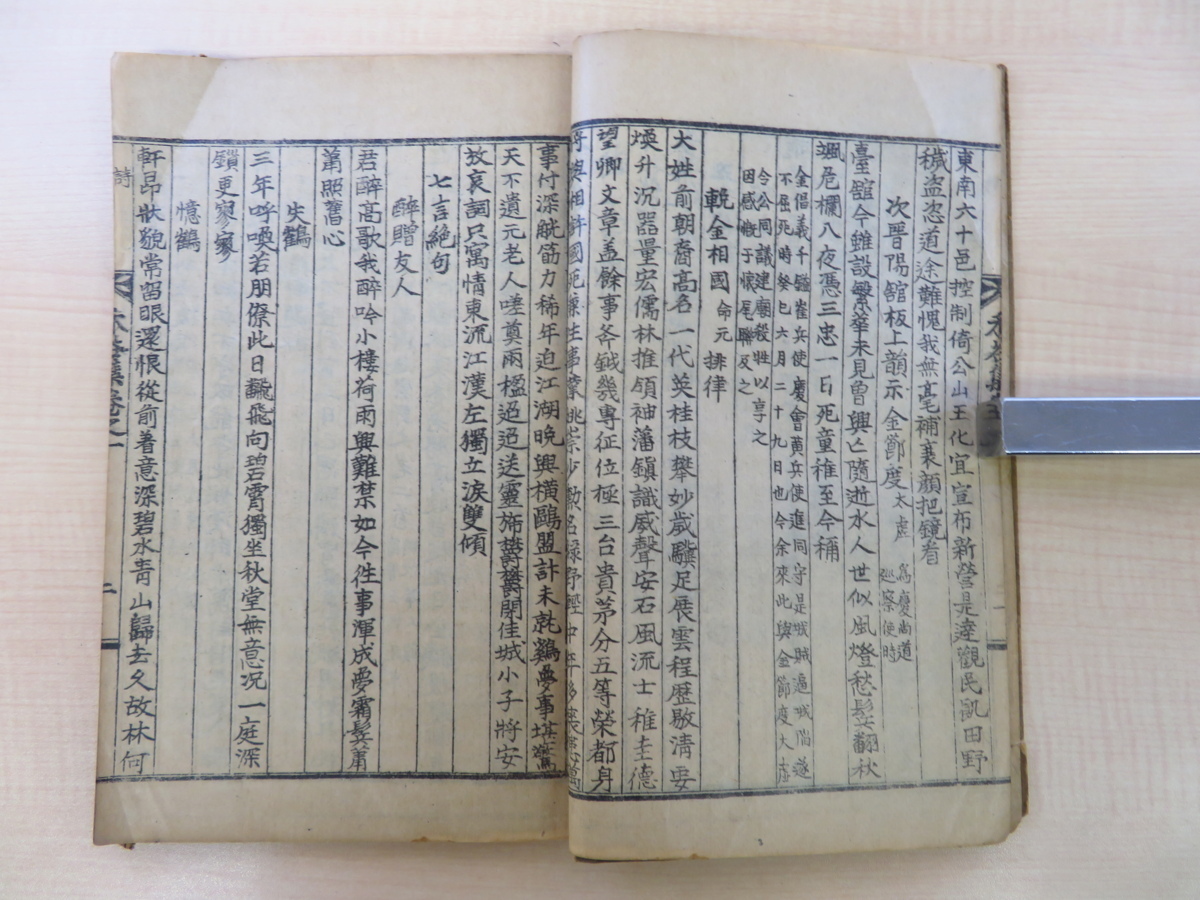 東南六十邑控制倚公山王化宜宣布新營是達觀民飢田野
穢盜恣道途難愧我無毫補衰顔把鏡看
次晋陽舘板上韻示金節度太虛 爲慶尙道
巡察使時
臺舘今雖設繁華未見曾興亡隨逝水人世似風燈愁髩翻秋
颯危欄八夜憑三忠一日死童稚至今稱
金倡義千鎰崔兵使慶會黃兵使進同守是城賊逼城陷遂
不屈死時癸巳六月二十九日也令余來此與金節度大虛
令公同議建廟殺牲以享之
因感慨于懷尾聯及之
輓金相國命元 排律
大姓前朝裔高名一代英桂枝攀妙歲驥足展雲程歷敭淸要
煥升沉器量宏儒林推領袖藩鎭識威聲安石風流士稚圭德
望卿文章盖餘事斧鉞幾專征位極三台貴茅分五等榮都身
事付深觥筋力稀年迫江湖晩興橫鷗盟計未就鷄夢事堪驚
天不遺元老人嗟奠兩楹迢迢送靈旆欝欝開佳城小子將安
放哀詞只寓情東流江漢左獨立淚雙傾
七言絶句
醉贈友人
君醉高歌我醉吟小樓荷雨興難禁如今徃事渾成夢霜髩蕭
蕭照舊心
失鶴
三年呼喚若朋僚此日飜飛向碧霄獨坐秋堂無意况一庭深
鎖更寥寥
憶鶴
軒昂狀貌常留眼還恨從前着意深碧水靑山歸去久故林何
詩
二